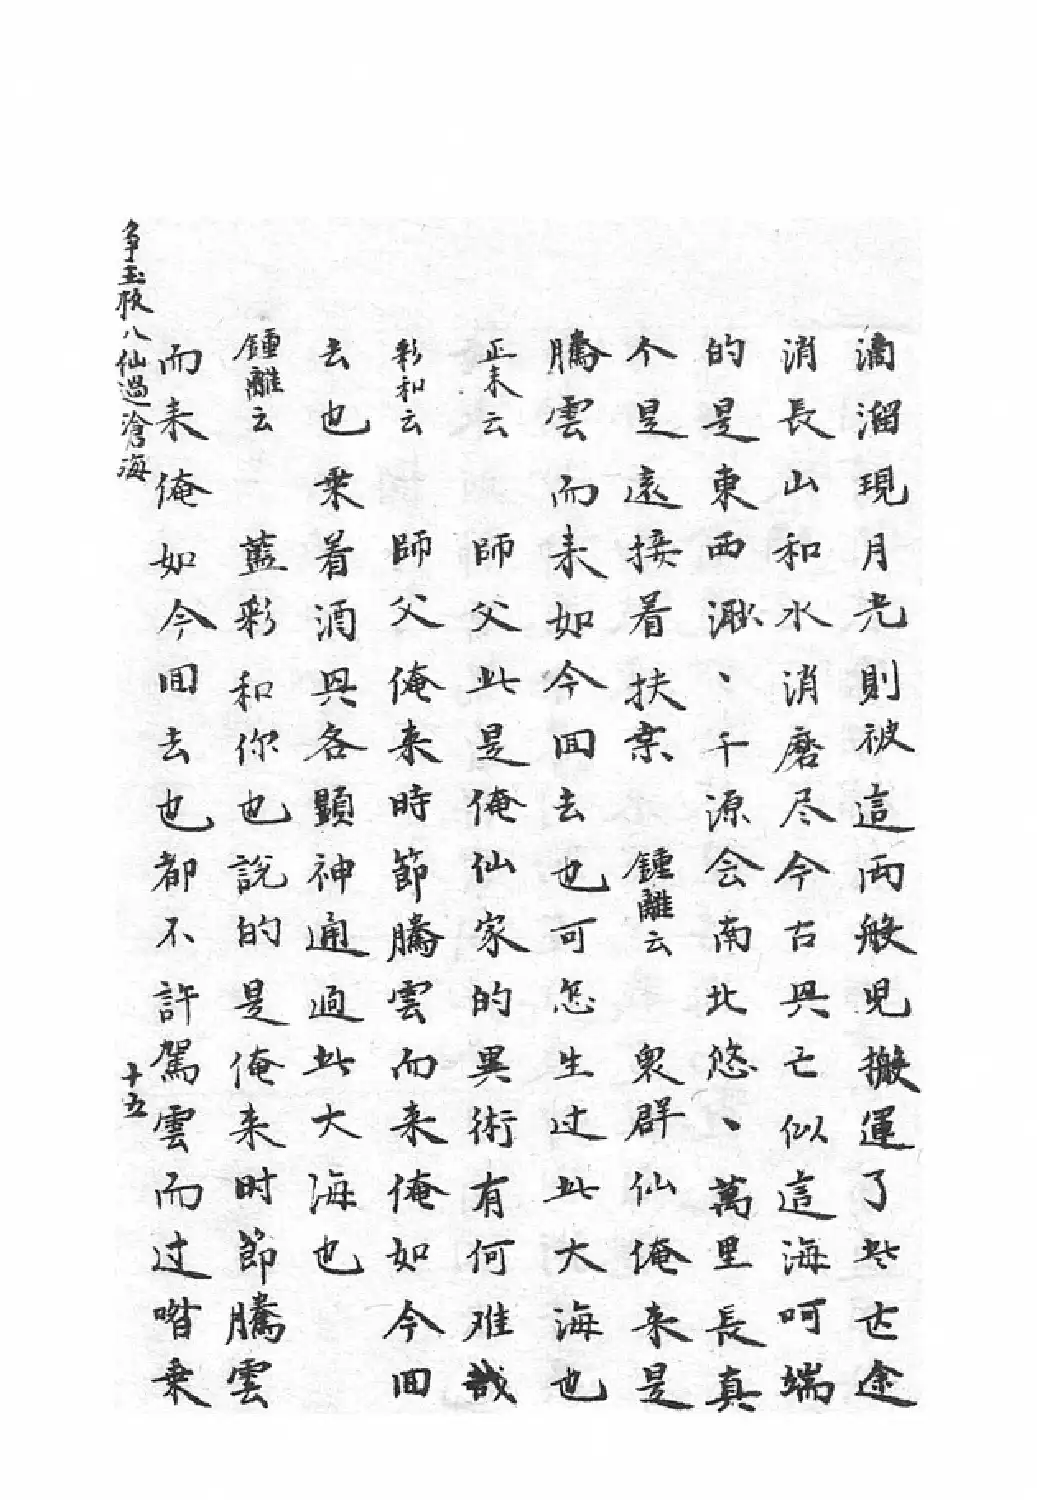 滴溜現月光則被這両般児搬運了些世途
消長山和水消磨尽今古興亡似這海呵端
的是東西溆、千源会南北悠、萬里長真
个是遠接着扶桒 鍾離云 衆群仙俺来是
騰雲而来如今囬去也可怎生过此大海也
正末云 師父此是俺仙家的異術有何难哉
彩和云 師父俺来時節騰雲而来俺如今囬
去也乗着酒興各顕神通過此大海也
鍾離云 藍彩和你也説的是俺来时節騰雲
而来俺如今囬去也都不許駕雲而过喒乗
争玉板八仙過滄海
十五